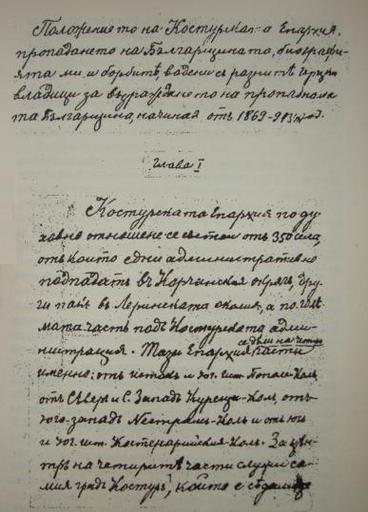 Положението на Костурската Епархия,
пропадането на Българщината, биографи-
ята ми и борбитѣ, водени съ разнитѣ гръцки
владици за възраждането на пропѫдната
та Българщина, начиная отъ 1869-913 год.
Глава I
Костурската Епархия по ду-
ховно отношение се състои отъ 350 села
отъ които едни административно
подпадатъ въ Корчанския окрѫгъ, дру-
ги пакъ въ Леринската околия, а по голѣ-
мата часть подъ Костурската адми-
нистрация. Тази Епархия се дѣли на четири части
именно: отъ истокъ и юг. ист. Пополе-Колъ
отъ Сѣверъ и С. Западъ Курещи-Колъ, отъ
юго-западъ Нестрамъ-Колъ и отъ югъ
и юг. ист. Костенарийския-Колъ. За цѣн-
тръ на четиритѣ части служи са-
мия градъ Костуръ, който е седалище